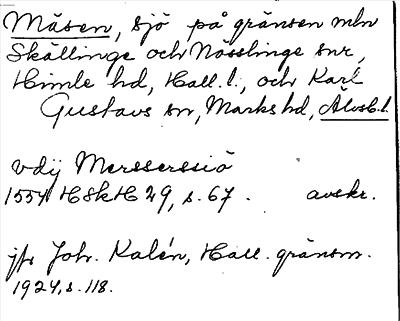 Mäsen, sjö på gränsen mln
Skällinge och Nösslinge snr,
Himle hd, Hall. l., och Karl
Gustavs sn, Marks hd, Älvsb. l.
vdij Mersserssiö
1554 HSkH 29, s. 67. avskr.
jfr Joh. Kalén, Hall. gränsn.
1924, s. 118.